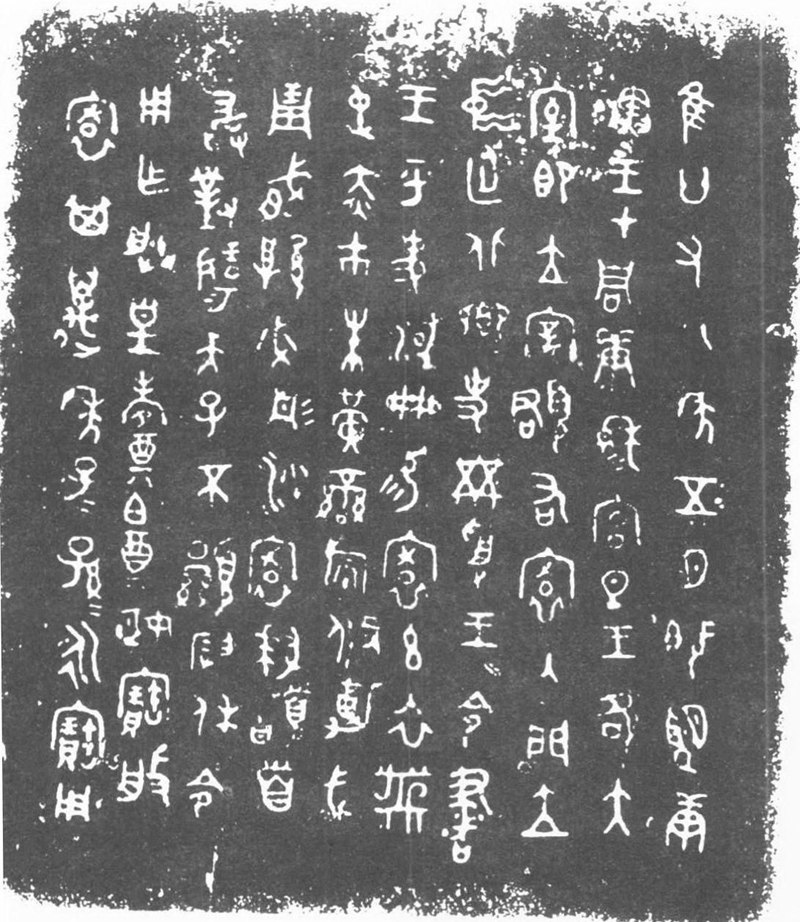 隹廿又八年五月既望庚
寅王才周康穆宮旦王各大
室即立宰頵右寰入門立
中廷北鄉史受王令書
王乎史淢冊易寰玄衣黹
屯赤巿朱黃䜌旂攸勒戈
琱㦸厚必彤沙寰拜𩒨首
敢對揚天子不顯叚休令
用乍朕皇考奠白奠姬寶般
寰其萬年子=孫=永寶用